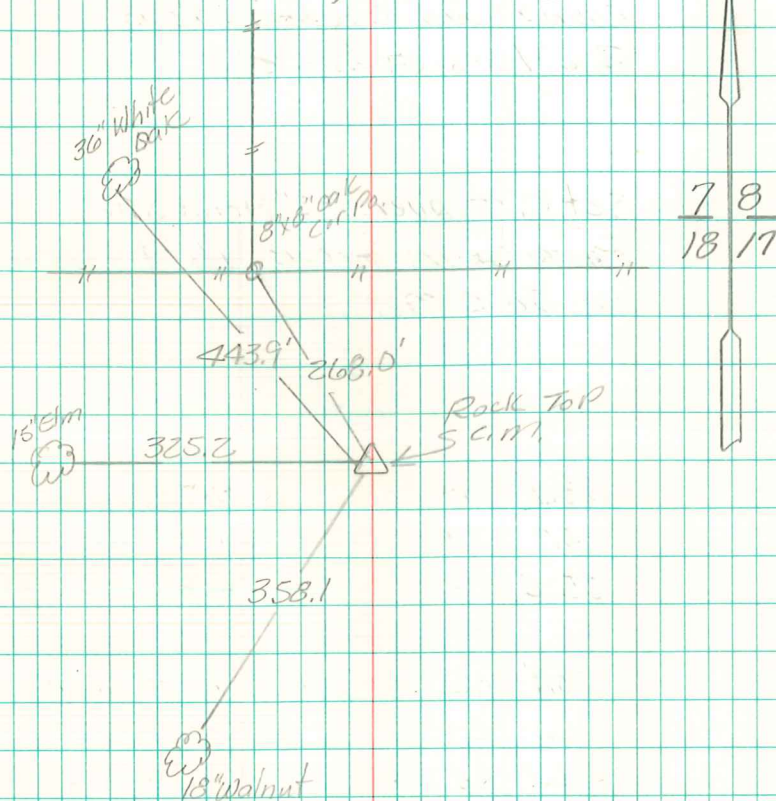 36" White
Oak
8"x8" Oak
Cor. Po.
7 8
18 17
443.9'
268.0'
Rock Top
S.C.M.
15" Elm
325.2
358.1
18" Walnut